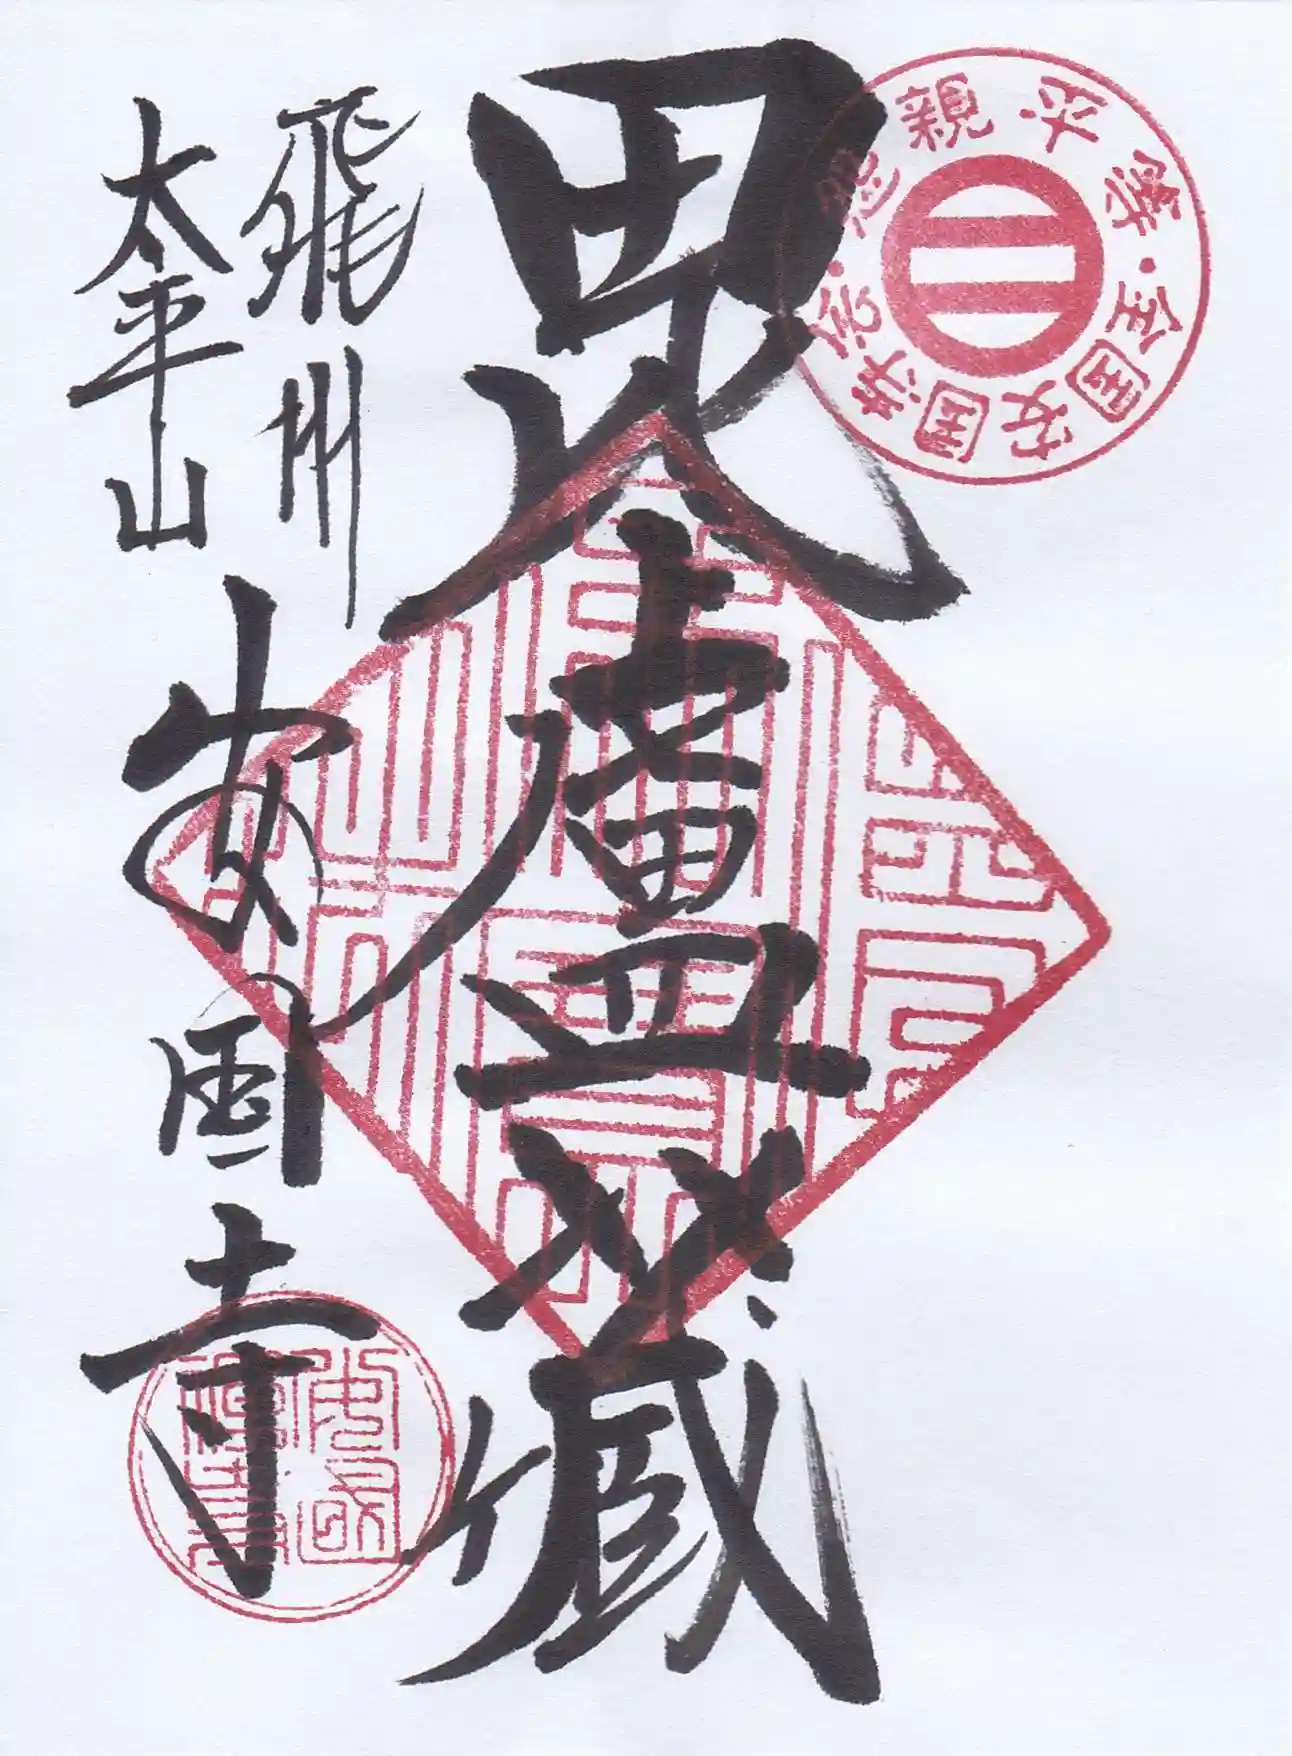 怨親平等・全国安国寺会・
毘盧蔵
飛州
太平山
安国寺
安國禅寺